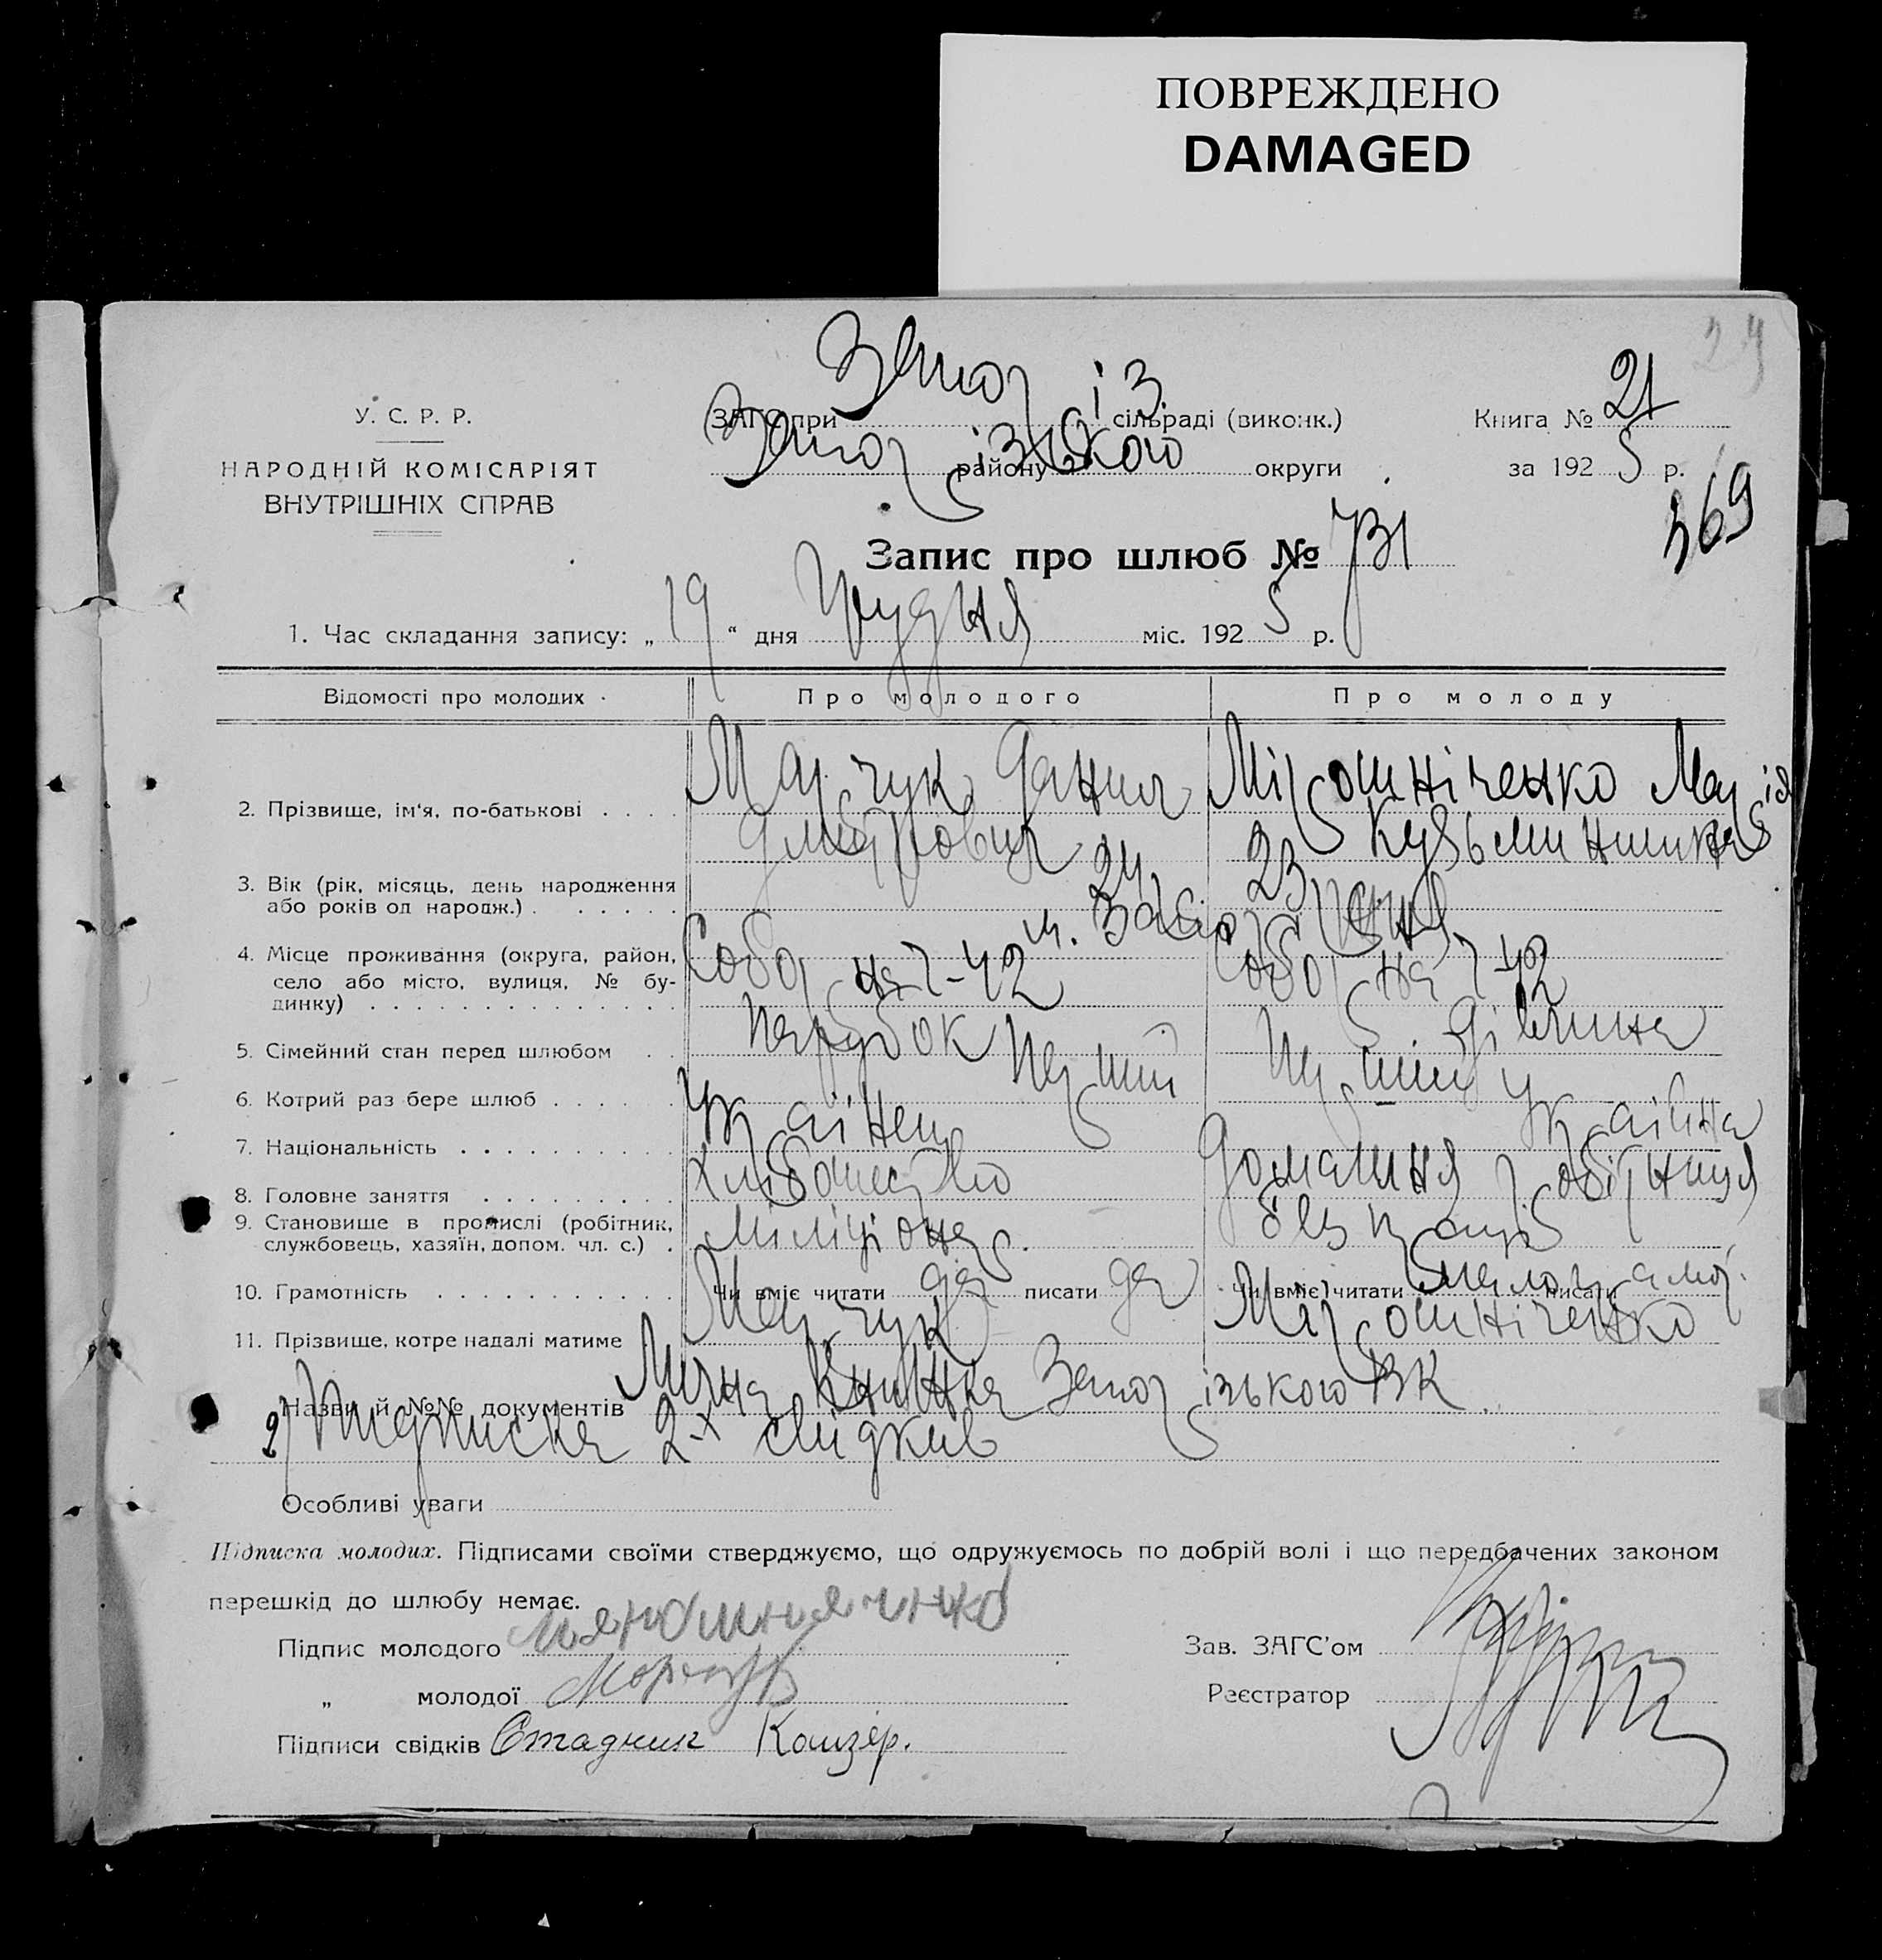 ПОВРЕЖДЕНО
DAMAGED
Запоріз.
У. С. Р. Р.
ЗАГС при сільраді (виконк.)
Книга № 21
НАРОДНІЙ КОМІСАРІЯТ
Запорізького району округи
за 1925 р.
ВНУТРІШНІХ СПРАВ
369
Запис про шлюб № 731
1. Час складання запису: „19“ дня Грудня міс. 1925 р.
Відомості про молодих
Про молодого
Про молоду
2. Прізвище, ім‘я, по-батькові
Марчук Данил
Дмитрович
Мірошніченко Марія
Кузьминишна
3. Вік (рік, місяць, день народження
або років од народж.)
24
23
4. Місце проживання (округа, район,
село або місто, вулиця, № бу-
динку)
Соборна 7-42
Соборна 7-42
5. Сімейний стан перед шлюбом
парубок
дівчина
6. Котрий раз бере шлюб
Перший
Перший
7. Національність
Українец
Українка
8. Головне заняття
хліборобство
домашня робітниця
9. Становище в промислі (робітник,
службовець, хазяїн, допом. чл. с.)
міліціонер.
без праці
10. Грамотність
Чи вміє читати да писати да
Чи вміє читати малограмот. писати
11. Прізвище, котре надалі матиме
Марчук
Мірошніченко
Назви й №№ документів Лична Книжка Запорізького ВК
2) Підписка 2-х свідків
Особливі уваги
Підписка молодих. Підписами своїми стверджуємо, що одружуємось по добрій волі і що передбачених законом
перешкід до шлюбу немає.
Підпис молодого
Зав. ЗАГС’ом
„ молодої
Реєстратор
Підписи свідків Стадник